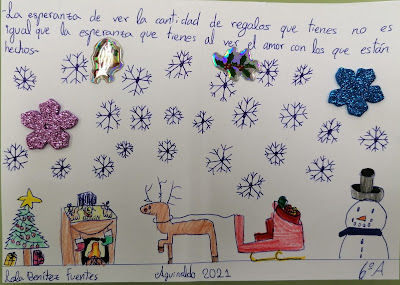 La esperanza de ver la cantidad de regalos que tienes no es
igual que la esperanza que tienes al ver el amor con los que están
hechos.
Lola Benítez Fuentes
Aguinaldo 2021
6ºA